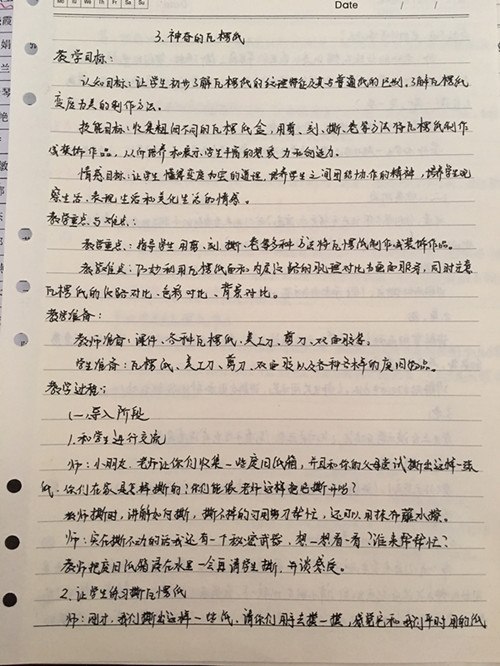 Mo Tu We Th Fr Sa Su
Date / /
霞
娟
兰
琴
艳
敏
3.神奇的瓦楞纸
教学目标:
认知目标:让学生初步了解瓦楞纸的纹理特征及其与普通纸的区别,了解瓦楞纸
变废为美的制作方法。
技能目标:收集粗细不同的瓦楞纸盒,用剪、刻、撕、卷等方法将瓦楞纸制作
成装饰作品,从而培养和展示学生丰富的想象力和创造力。
情感目标:让学生懂得变废为宝的道理,培养学生之间团结协作的精神,培养学生观
察生活、表现生活和美化生活的情感。
教学重点与难点:
教学重点:指导学生用剪、刻、撕、卷等多种方法将瓦楞纸制作成装饰作品。
教学难点:巧妙利用瓦楞纸面和内层纹路的肌理对比为画面服务,同时注意
瓦楞纸的纹路对比、色彩对比、背景对比。
教学准备:
教师准备:课件、各种瓦楞纸、美工刀、剪刀、双面胶等。
学生准备:瓦楞纸、美工刀、剪刀、双面胶以及各种各样的废旧物品。
教学过程:
(一)导入阶段
1.和学生进行交流
师:小朋友,老师让你们收集一些废旧纸箱,并且和你的父母尝试撕出这样一张
纸,你们在家是怎样撕的?你们能像老师这样把它撕开吗?
教师撕时,讲解如何撕,撕不掉的可用剪刀帮忙,还可以用抹布蘸水擦。
师:实在撕不动的话我还有一个秘密武器,想一想看看?谁来帮帮忙?
教师把废旧纸箱浸在水里一会再请学生撕,并谈感受。
2.让学生练习撕瓦楞纸
师:刚才,我们撕出这样一张纸,请你们用手去摸一摸,感觉它和我们平时用的纸